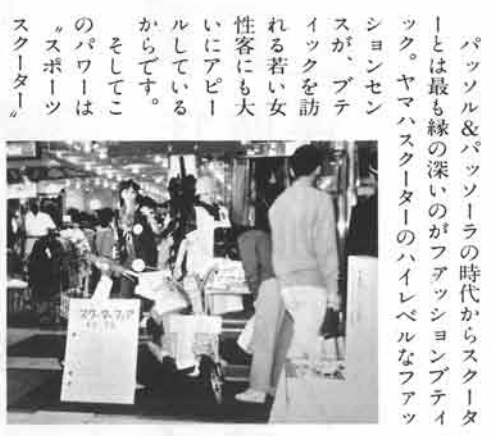 パッソル&パッソーラの時代からスクータ
ーとは最も縁の深いのがファッションブティ
ック。ヤマハスクーターのハイレベルなファッ
ションセン
スが、ブテ
ィックを訪
れる若い女
性客にも大
いにアピー
ルしている
からです。
そしてこ
のパワーは
〝スポーツ
スクーター〟
スクーターフェア